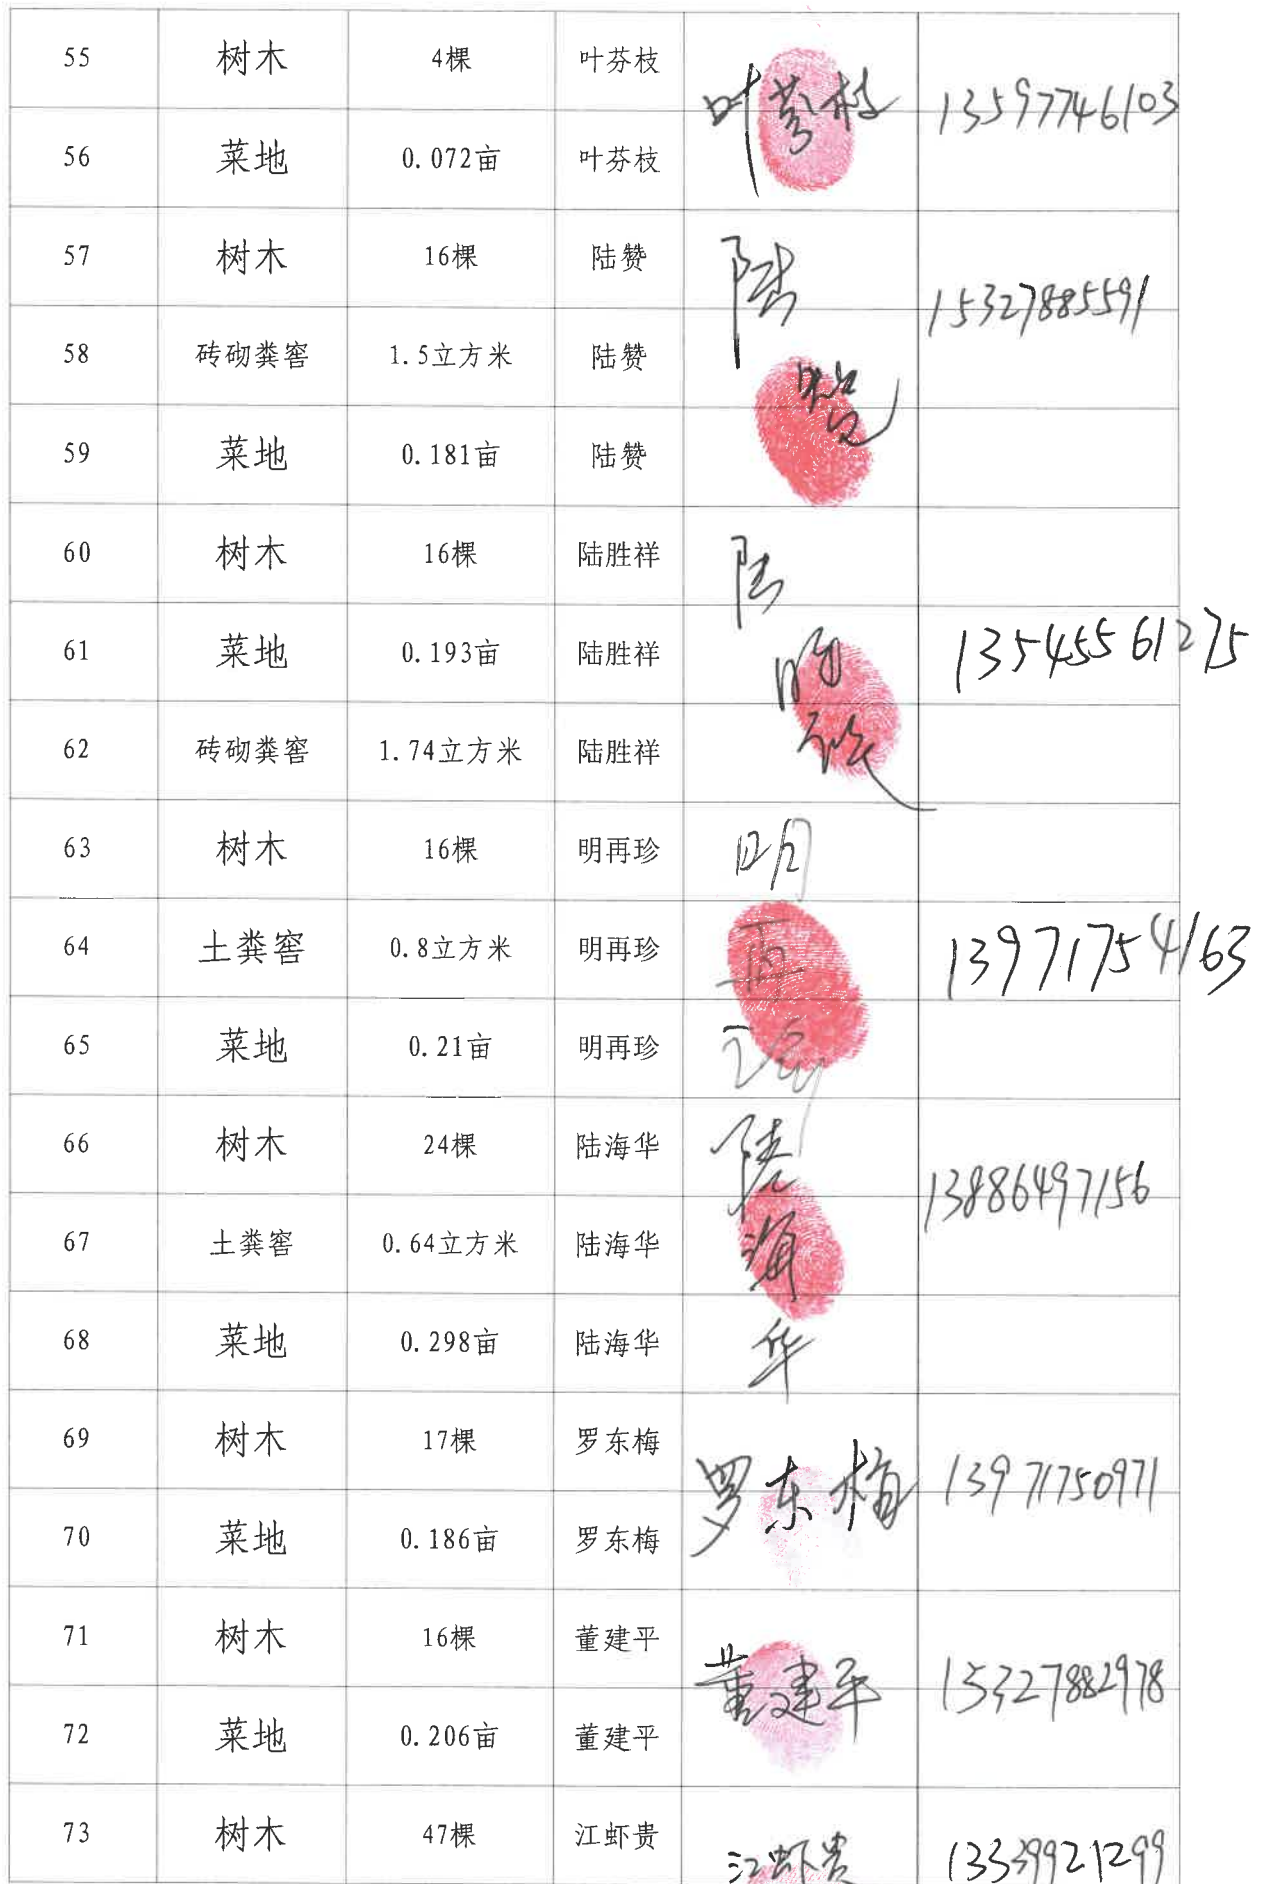 55 树木 4棵 叶芬枝 叶芬枝 13597746103
56 菜地 0.072亩 叶芬枝
57 树木 16棵 陆赞 陆赞 15327885591
58 砖砌粪窖 1.5立方米 陆赞
59 菜地 0.181亩 陆赞
60 树木 16棵 陆胜祥 陆胜祥
61 菜地 0.193亩 陆胜祥 13545561275
62 砖砌粪窖 1.74立方米 陆胜祥
63 树木 16棵 明再珍 明再珍
64 土粪窖 0.8立方米 明再珍 13971754163
65 菜地 0.21亩 明再珍
66 树木 24棵 陆海华 陆海华 13886497156
67 土粪窖 0.64立方米 陆海华
68 菜地 0.298亩 陆海华
69 树木 17棵 罗东梅 罗东梅 13971750971
70 菜地 0.186亩 罗东梅
71 树木 16棵 董建平 董建平 15327882978
72 菜地 0.206亩 董建平
73 树木 47棵 江虾贵 江虾贵 13339921299